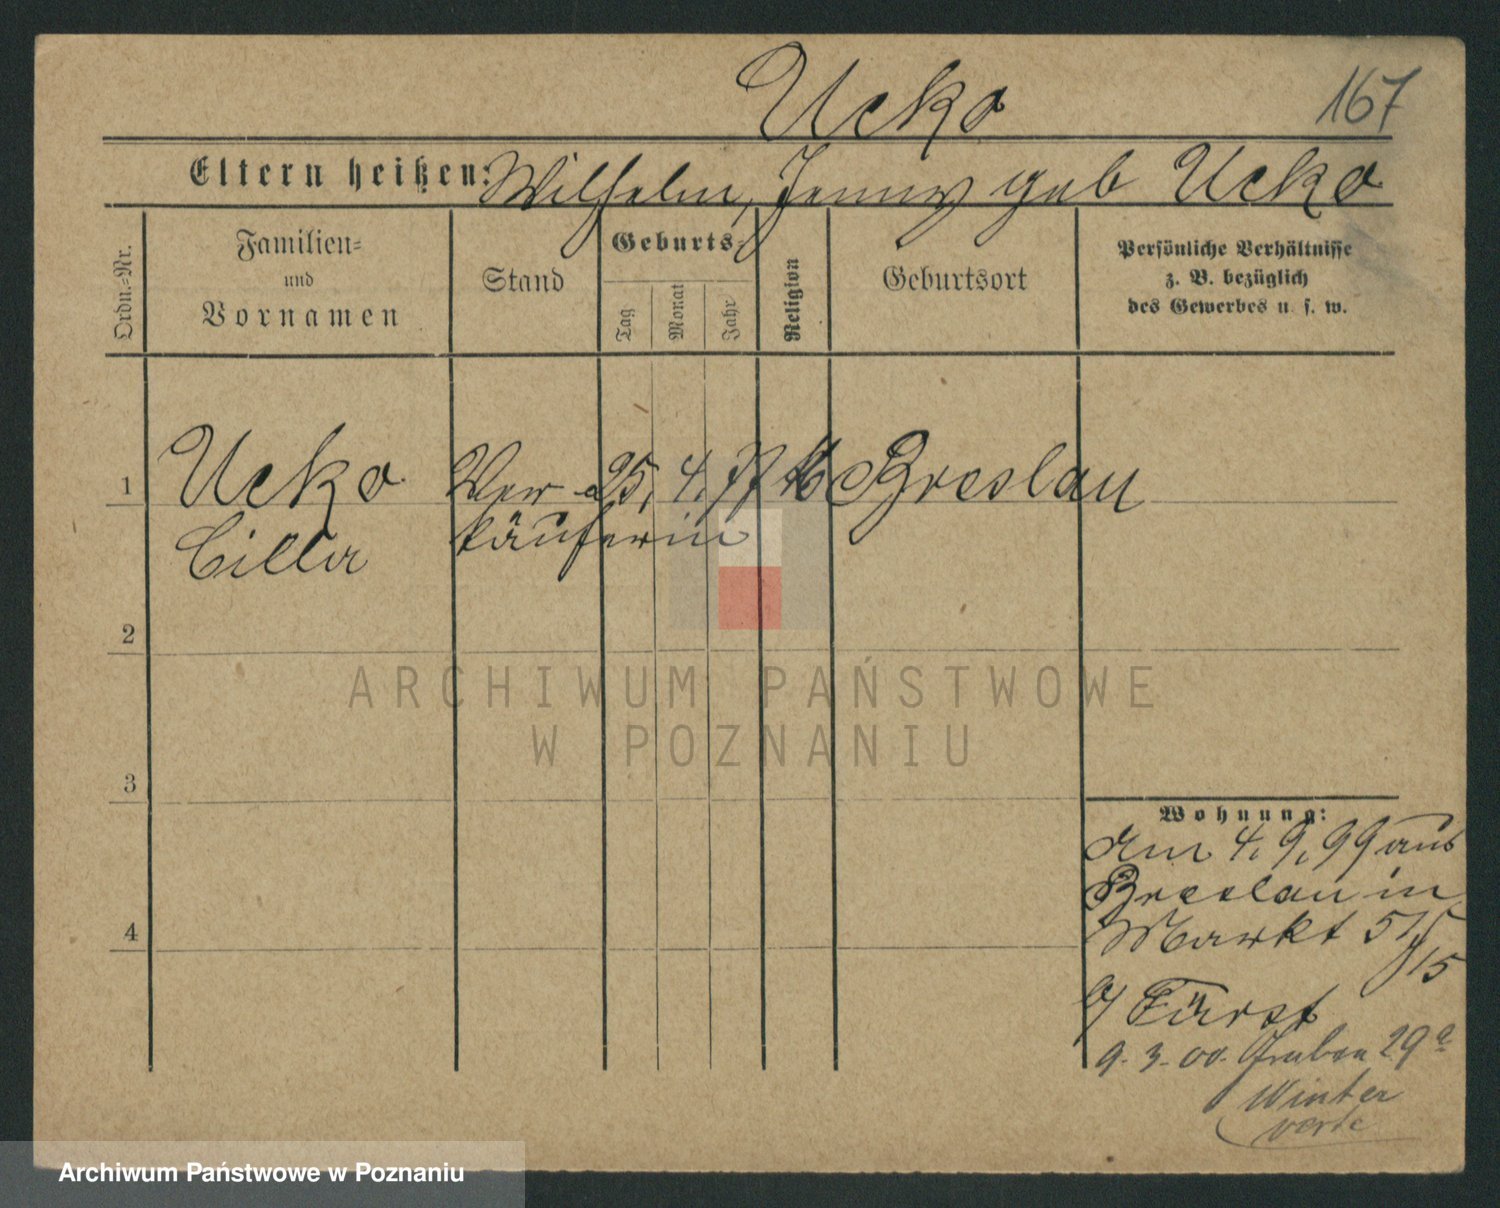 Ucko
167
Eltern heißen: Wilhelm, Jenny geb Ucko
Ordn.-Nr.
Familien-
und
Vornamen
Stand
Geburts-
Tag
Monat
Jahr
Religion
Geburtsort
Persönliche Verhältnisse
z. B. bezüglich
des Gewerbes u. s. w.
1
Ucko
Cilla
Ver-
käuferin
25. 4. 77
Breslau
2
3
4
Wohnung:
Am 4. 9. 99 aus
Breslau in
Markt
15
b/ Fürst
9. 3. 00. Graben 29a
Winter
ARCHIWUM PAŃSTWOWE
W POZNANIU
Archiwum Państwowe w Poznaniu